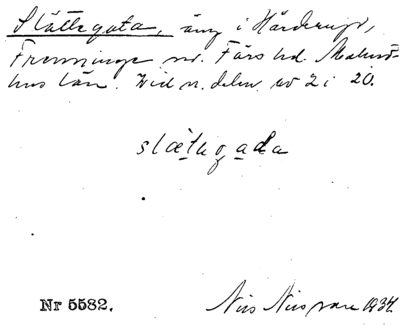 Slättegata, äng i Hårderup,
Fränninge sn. Färs hd. Malmö-
hus län. Vid n. delen av 2 i 20.
slätegada
Nr 5582.
Nils Nilsson 1934.